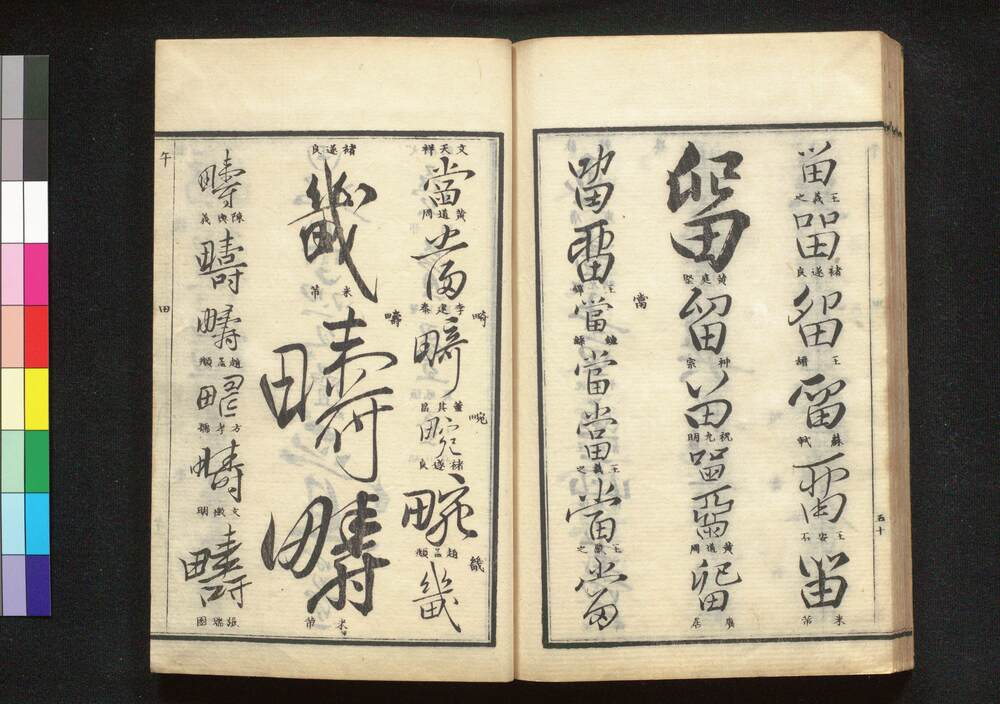 留 王羲之 留 褚遂良 留 王 留 蘇軾 留 王安石 留 米芾
五十
留 黄庭堅 留 神宗 留 祝允明 留 留 黄道周 留
留 留 王鐸 當 當 鍾繇 當 當 王羲之 當 王獻之 當
文天祥 當 黄道周 當 李建泰 畸 畸 董其昌 畹 畹 褚遂良 畹 趙孟頫 畿 畿
褚遂良 畿 米芾 疇 疇 疇 米芾
疇 陳與義 疇 疇 趙孟頫 疇 方孝孺 疇 文徵明 疇 張瑞圖
午 田